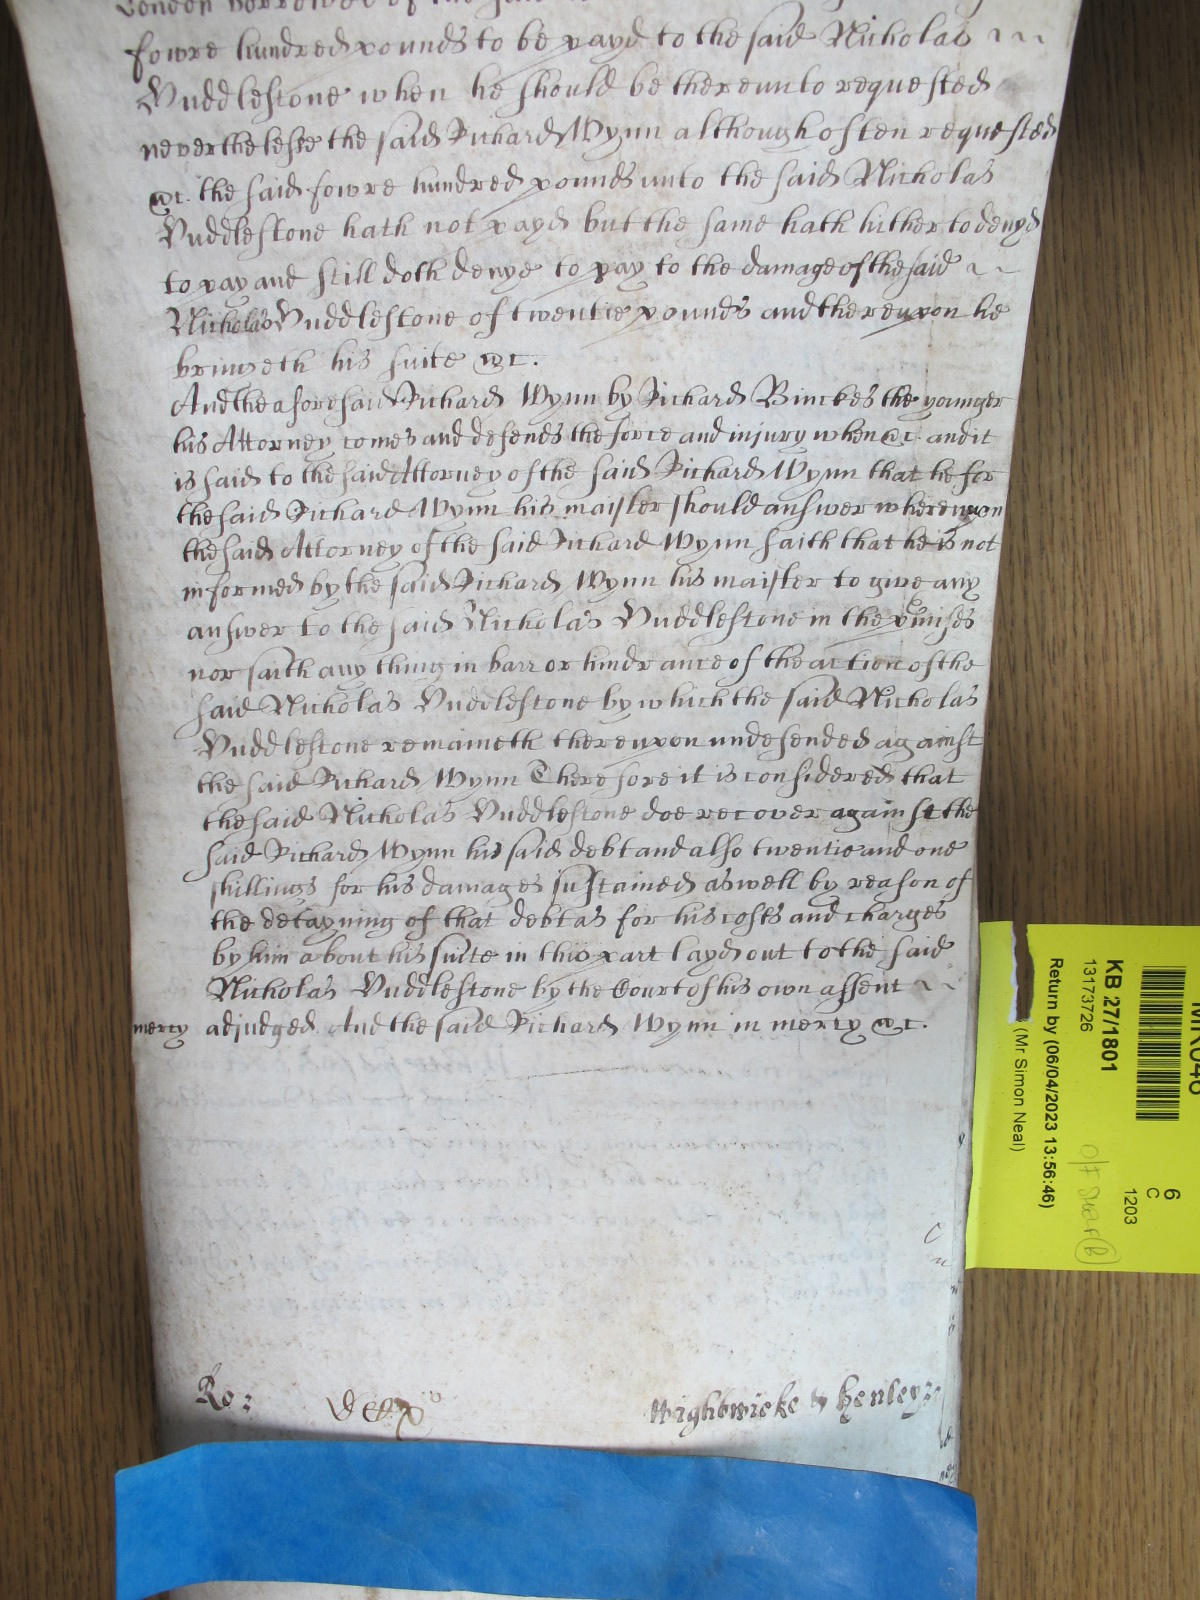 London borrowed of the said
fowre hundred pounds to be payd to the said Nicholas
Duddlestone when he should be thereunto requested
neverthelesse the said Richard Wynn although often requested
&c. the said fowre hundred pounds unto the said Nicholas
Duddlestone hath not payd but the same hath hitherto denyd
to pay and still doth denye to pay to the damage of the said
Nicholas Duddlestone of twentie pounds and thereupon he
bringeth his suite &c.
And the aforesaid Richard Wynn by Richard Binckes the younger
his Attorney comes and defends the force and injury when &c. and it
is said to the said Attorney of the said Richard Wynn that he for
the said Richard Wynn his maister should answer whereupon
the said Attorney of the said Richard Wynn saith that he is not
informed by the said Richard Wynn his maister to give any
answer to the said Nicholas Duddlestone in the p'mises
nor saith any thing in barr or hindrance of the action of the
said Nicholas Duddlestone by which the said Nicholas
Duddlestone remaineth thereupon undefended against
the said Richard Wynn Therefore it is considered that
the said Nicholas Duddlestone doe recover against the
said Richard Wynn his said debt and also twentie and one
shillings for his damages sustained aswell by reason of
the detayning of that debt as for his costs and charges
by him about his suite in this part layd out to the said
Nicholas Duddlestone by the Court of his own assent
mercy adjudged. And the said Richard Wynn in mercy &c.
Ro:
Wightwicke & Henley:
6
C
1203
KB 27/1801
13173726
Return by (06/04/2023 13:56:46)
(Mr Simon Neal)